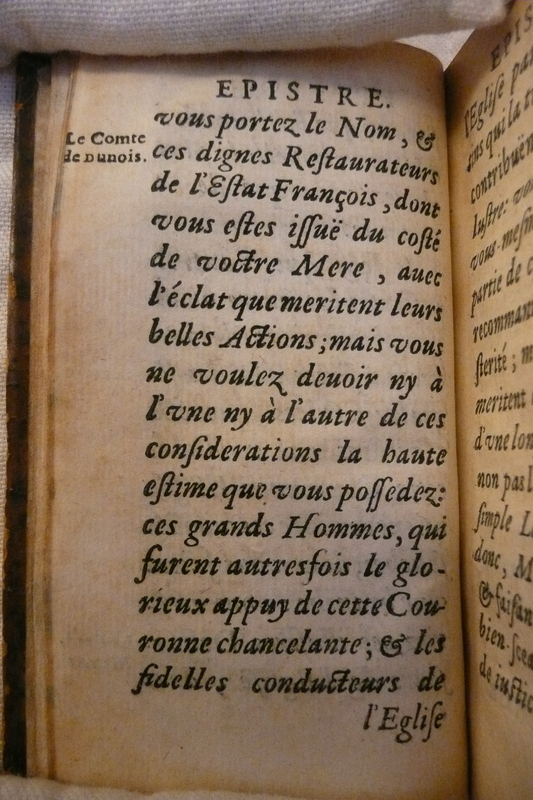 EPISTRE.
Le Comte
de Dunois.
vous portez le Nom, &
ces dignes Reſtaurateurs
de l'Eſtat François, dont
vous eſtes iſſuë du coſté
de voſtre Mere, auec
l'éclat que meritent leurs
belles Actions; mais vous
ne voulez deuoir ny à
l'vne ny à l'autre de ces
conſiderations la haute
eſtime que vous poſſedez:
ces grands Hommes, qui
furent autresfois le glo-
rieux appuy de cette Cou-
ronne chancelante; & les
fidelles conducteurs de
l'Egliſe
EPIS
l'Egliſe
qui la
contribuë
luſtre:
vous-meſm
partie de
recomman
ſterité;
meritent
d'vne lon
non pas
ſimple
donc, M
& faiſan
bien-ſcea
de iuſtic